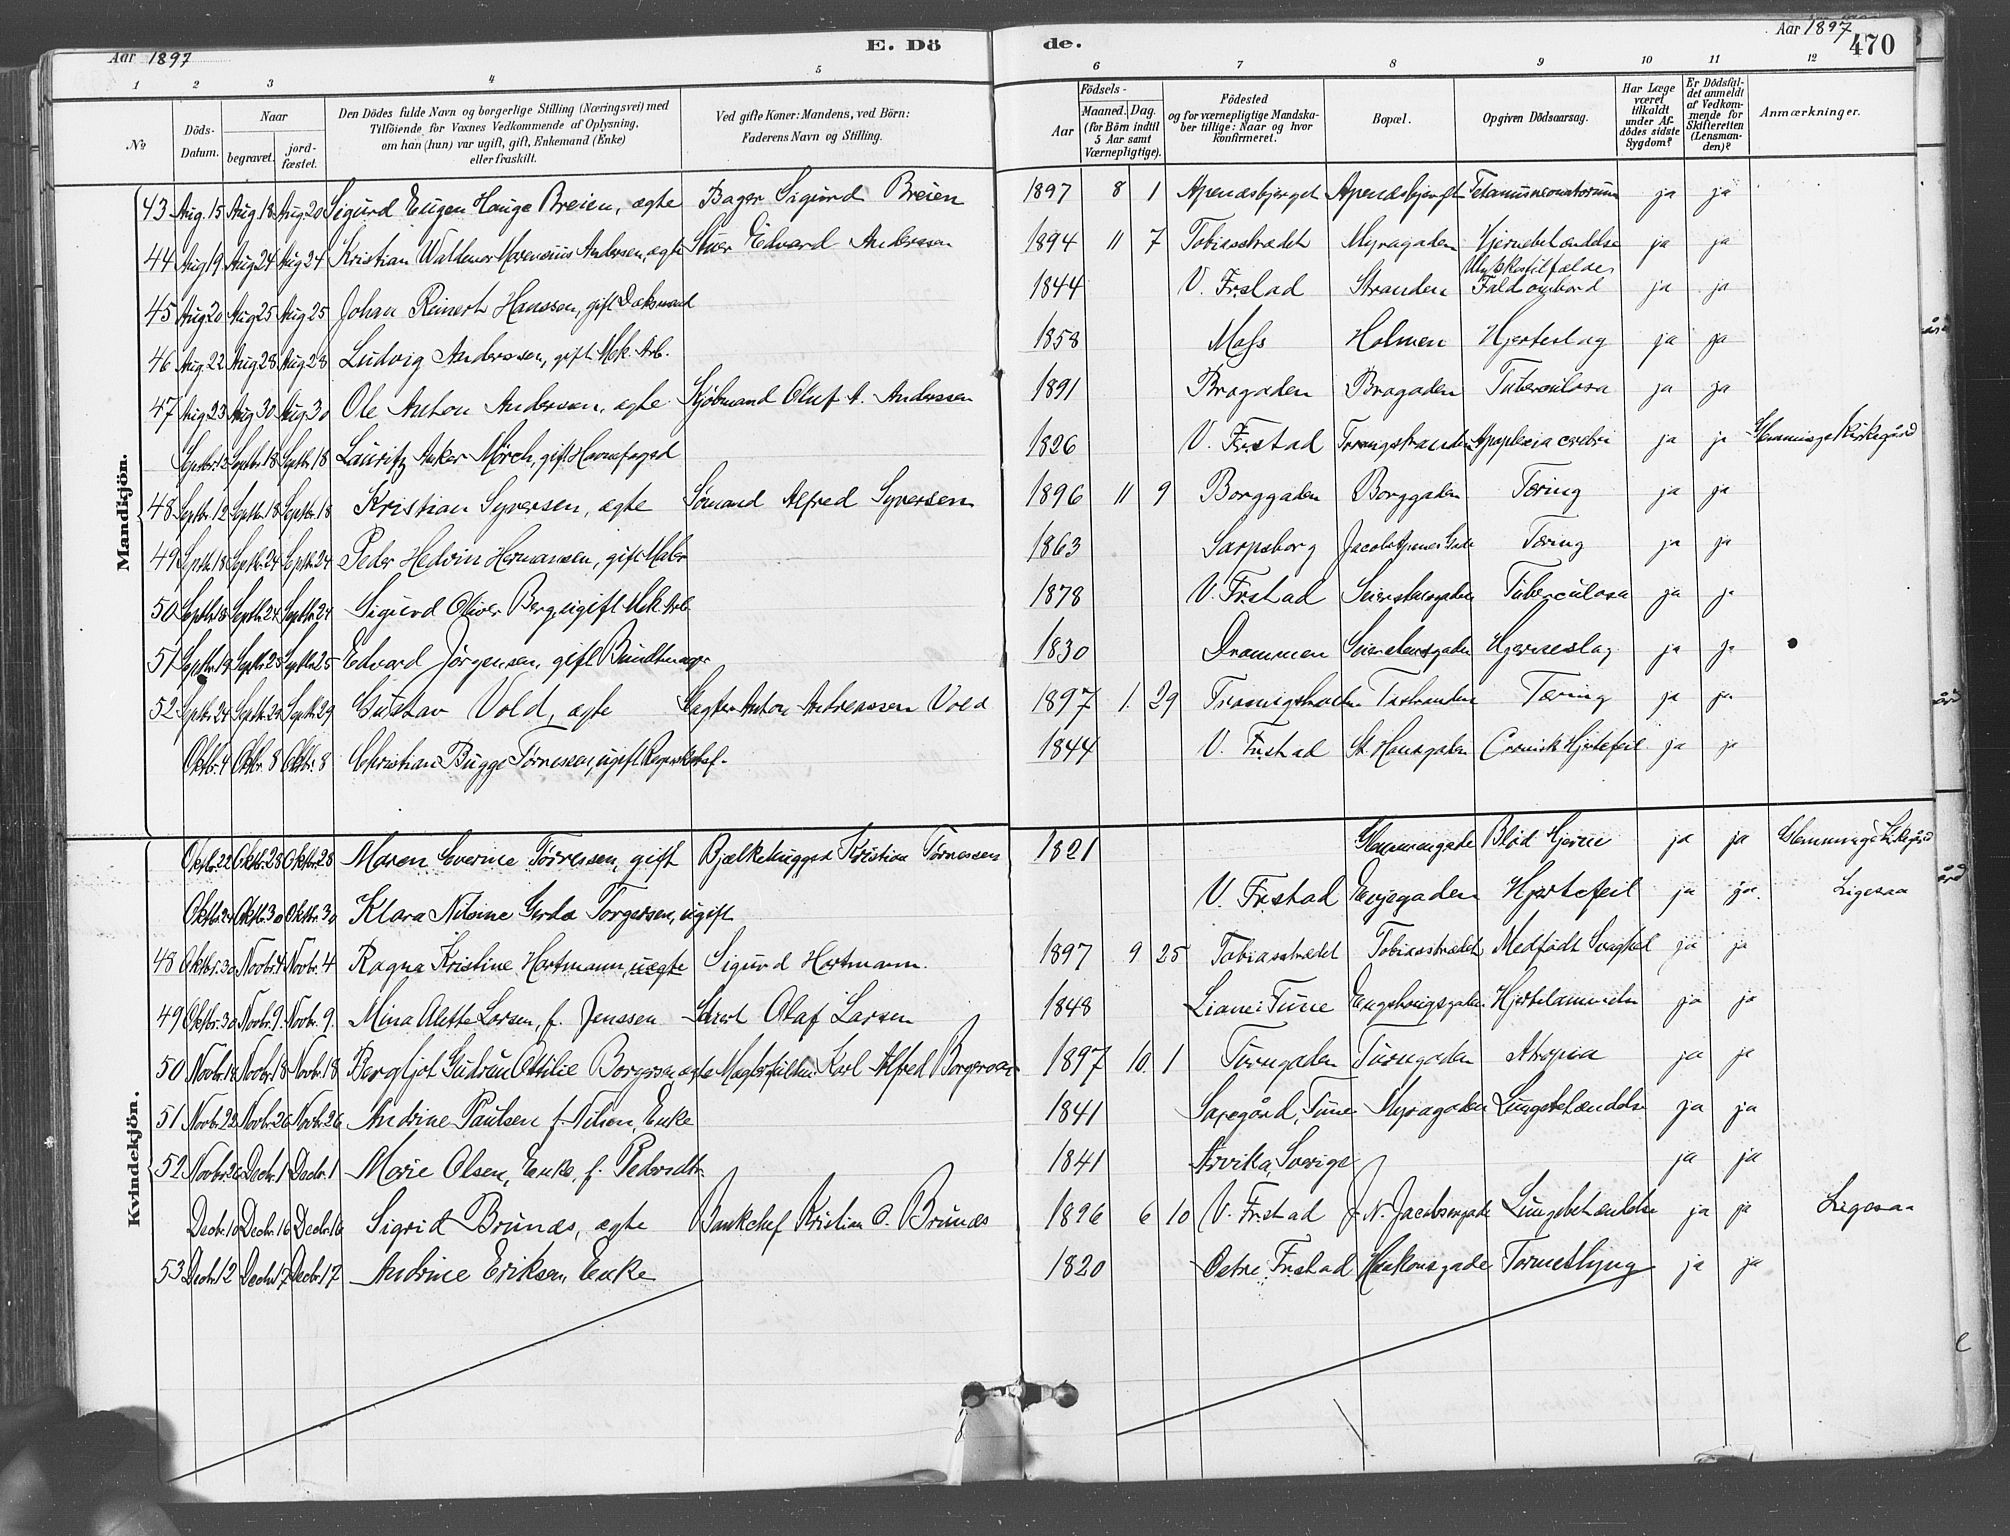 Aar 1897 E. Dö de. Aar 1897 470
1 2 3 4 5 6 7 8 9 10 11 12
No Döds-Datum. Naar begravet. jordfæstet. Den Dödes fulde Navn og borgerlige Stilling (Næringsvei) med Tilföiende for Voxnes Vedkommende af Oplysning, om han (hun) var ugift, gift, Enkemand (Enke) eller fraskilt. Ved gifte Koner: Mandens, ved Börn: Faderens Navn og Stilling. Födsels- Aar Maaned. Dag. (for Börn indtil 5 Aar samt Værnepligtige). Födested og for værnepligtige Mandskaber tillige: Naar og hvor konfirmeret. Bopæl. Opgiven Dödsaarsag. Har Læge været tilkaldt under Afdödes sidste Sygdom? Er Dödsfaldet anmeldt af Vedkommende for Skifteretten (Lensmanden)? Anmærkninger.
Mandkjön.
43 Aug. 15 Aug 18 Aug 20 Sigurd Eugen Hauge Breien, ægte Bager Sigurd Breien 1897 8 1 Apenæsbjerget Apenæsbjerget Tetanus neonatorum ja ja
44 Aug 19 Aug 24 Aug 24 Kristian Waldemar Andersen, ægte Edvard Andersen 1894 11 7 Tobiasstrædet Myragaden Hjernebetændelse ja ja
45 Aug 20 Aug 25 Aug 25 Johan Reinert Hanssen, gift 1844 V. Frstad Stranden Ulykkestilfælde, Fald ombord ja ja
46 Aug 22 Aug 28 Aug 28 Ludvig Anderssen, gift Mek. Arb. 1858 Moss Holmen Hjerteslag ja ja
47 Aug 23 Aug 30 Aug 30 Ole Anton Andersen, ægte Kjöbmand Oluf A. Anderssen 1891 Brogaden Brogaden Tuberculosa ja ja
Septbr. 12 Septbr 18 Septbr 18 Lauritz Anker Mörch, gift Havnefoged 1826 V. Frstad Apoplexia cerebri ja ja Glemminge Kirkegård
48 Septbr 12 Septbr 18 Septbr 18 Kristian Syversen, ægte Sömand Alfred Syversen 1896 11 9 Borggaden Borggaden Tæring ja ja
49 Septbr 18 Septbr 24 Septbr 24 Peder Hedvin Hermansen, gift Maler 1863 Sarpsborg Tæring ja ja
50 Septbr 18 Septbr 24 Septbr 24 Sigurd Oliver Berg, ugift Mek. Arb. 1878 V. Frstad Seierstensgaden Tuberculosa ja ja
51 Septbr 19 Septbr 25 Septbr 25 Edvard Jørgensen, gift Bundtmager 1830 Drammen Seierstensgaden Hjerneslag ja ja
52 Septbr 24 Septbr 29 Septbr 29 Gustav Vold, ægte Slagter Anton Andreassen Vold 1897 1. 29 Tæring ja ja
Oktbr. 4 Oktbr. 8 Oktbr. 8 Christian Bugge Tørnessen, ugift 1844 V. Frstad St. Hansgaden Cronisk Hjertefeil ja ja
Kvindekjön.
Oktbr. 22 Oktbr. 28 Oktbr. 28 Maren Severine Tørressen, gift Bjælkehugger Kristian Tørnessen 1821 Glemmengade Blød Hjerne ja ja Glemminge Kirkegård
Oktbr. Oktbr. 30 Oktbr. 30 Klara Nilsine Gerda Torgersen, ugift V. Frstad Hjertefeil ja ja. Ligesaa
48 Oktbr. 30 Novbr. 4 Novbr. 4 Ragna Kristine Hartmann, uægte Sigurd Hartmann. 1897 9 25 Tobiasstrædet Tobiasstrædet Medfødt Svaghed ja ja
49 Oktbr. 30 Novbr. 9. Novbr. 9. Mina Alette Larsen, f. Jenssen Olaf Larsen 1848 Tune Hjertelammelse ja ja
50 Novbr. 12 Novbr. 18 Novbr. 18 Bergljot Gudrun Ottilie Borgersen, ægte Karl Alfred Borgersen 1897 10. 1 Turngaden Turngaden Atropia ja ja
51 Novbr. 22 Novbr. 26 Novbr. 26 Andrine Paulsen f. Nilsen, Enke 1841 Tune Myragaden Lungebetændelse ja ja
52 Novbr. 26 Decbr. 1 Decbr. 1 Marie Olsen, Enke, f. Pedersdtr. 1841 Arvika, Sverige ja ja
Decbr. 10 Decbr. 16 Decbr. 16 Sigrid Brunæs, ægte Bankchef Kristian O. Brunæs 1896 6 10 V. Frstad J. N. Jacobsengade Lungebetændelse ja ja Ligesaa
53 Decbr. 12 Decbr. 17 Decbr. 17 Andrine Eriksen, Enke 1820 Østre Frstad Haakonsgade Tarmeslyng ja ja